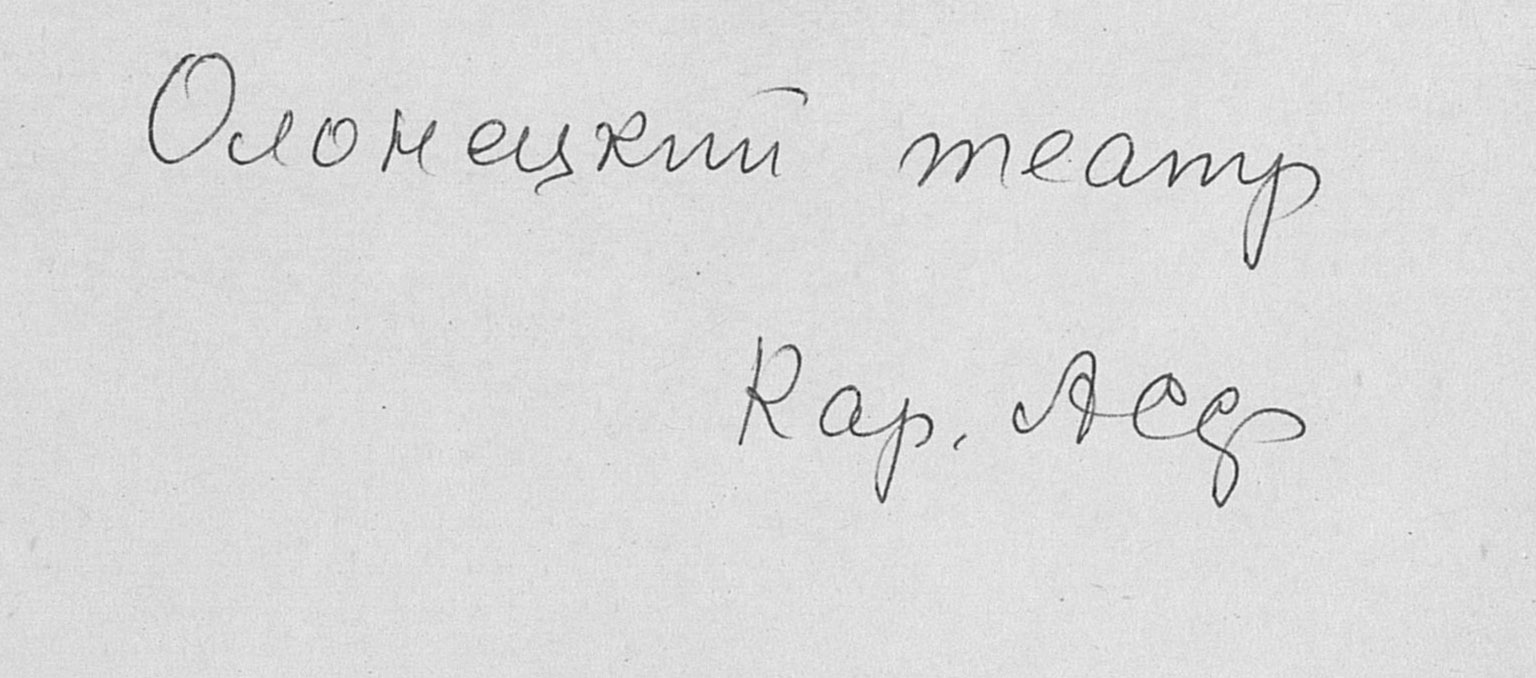 Олонецкий театр
Кар. АССР